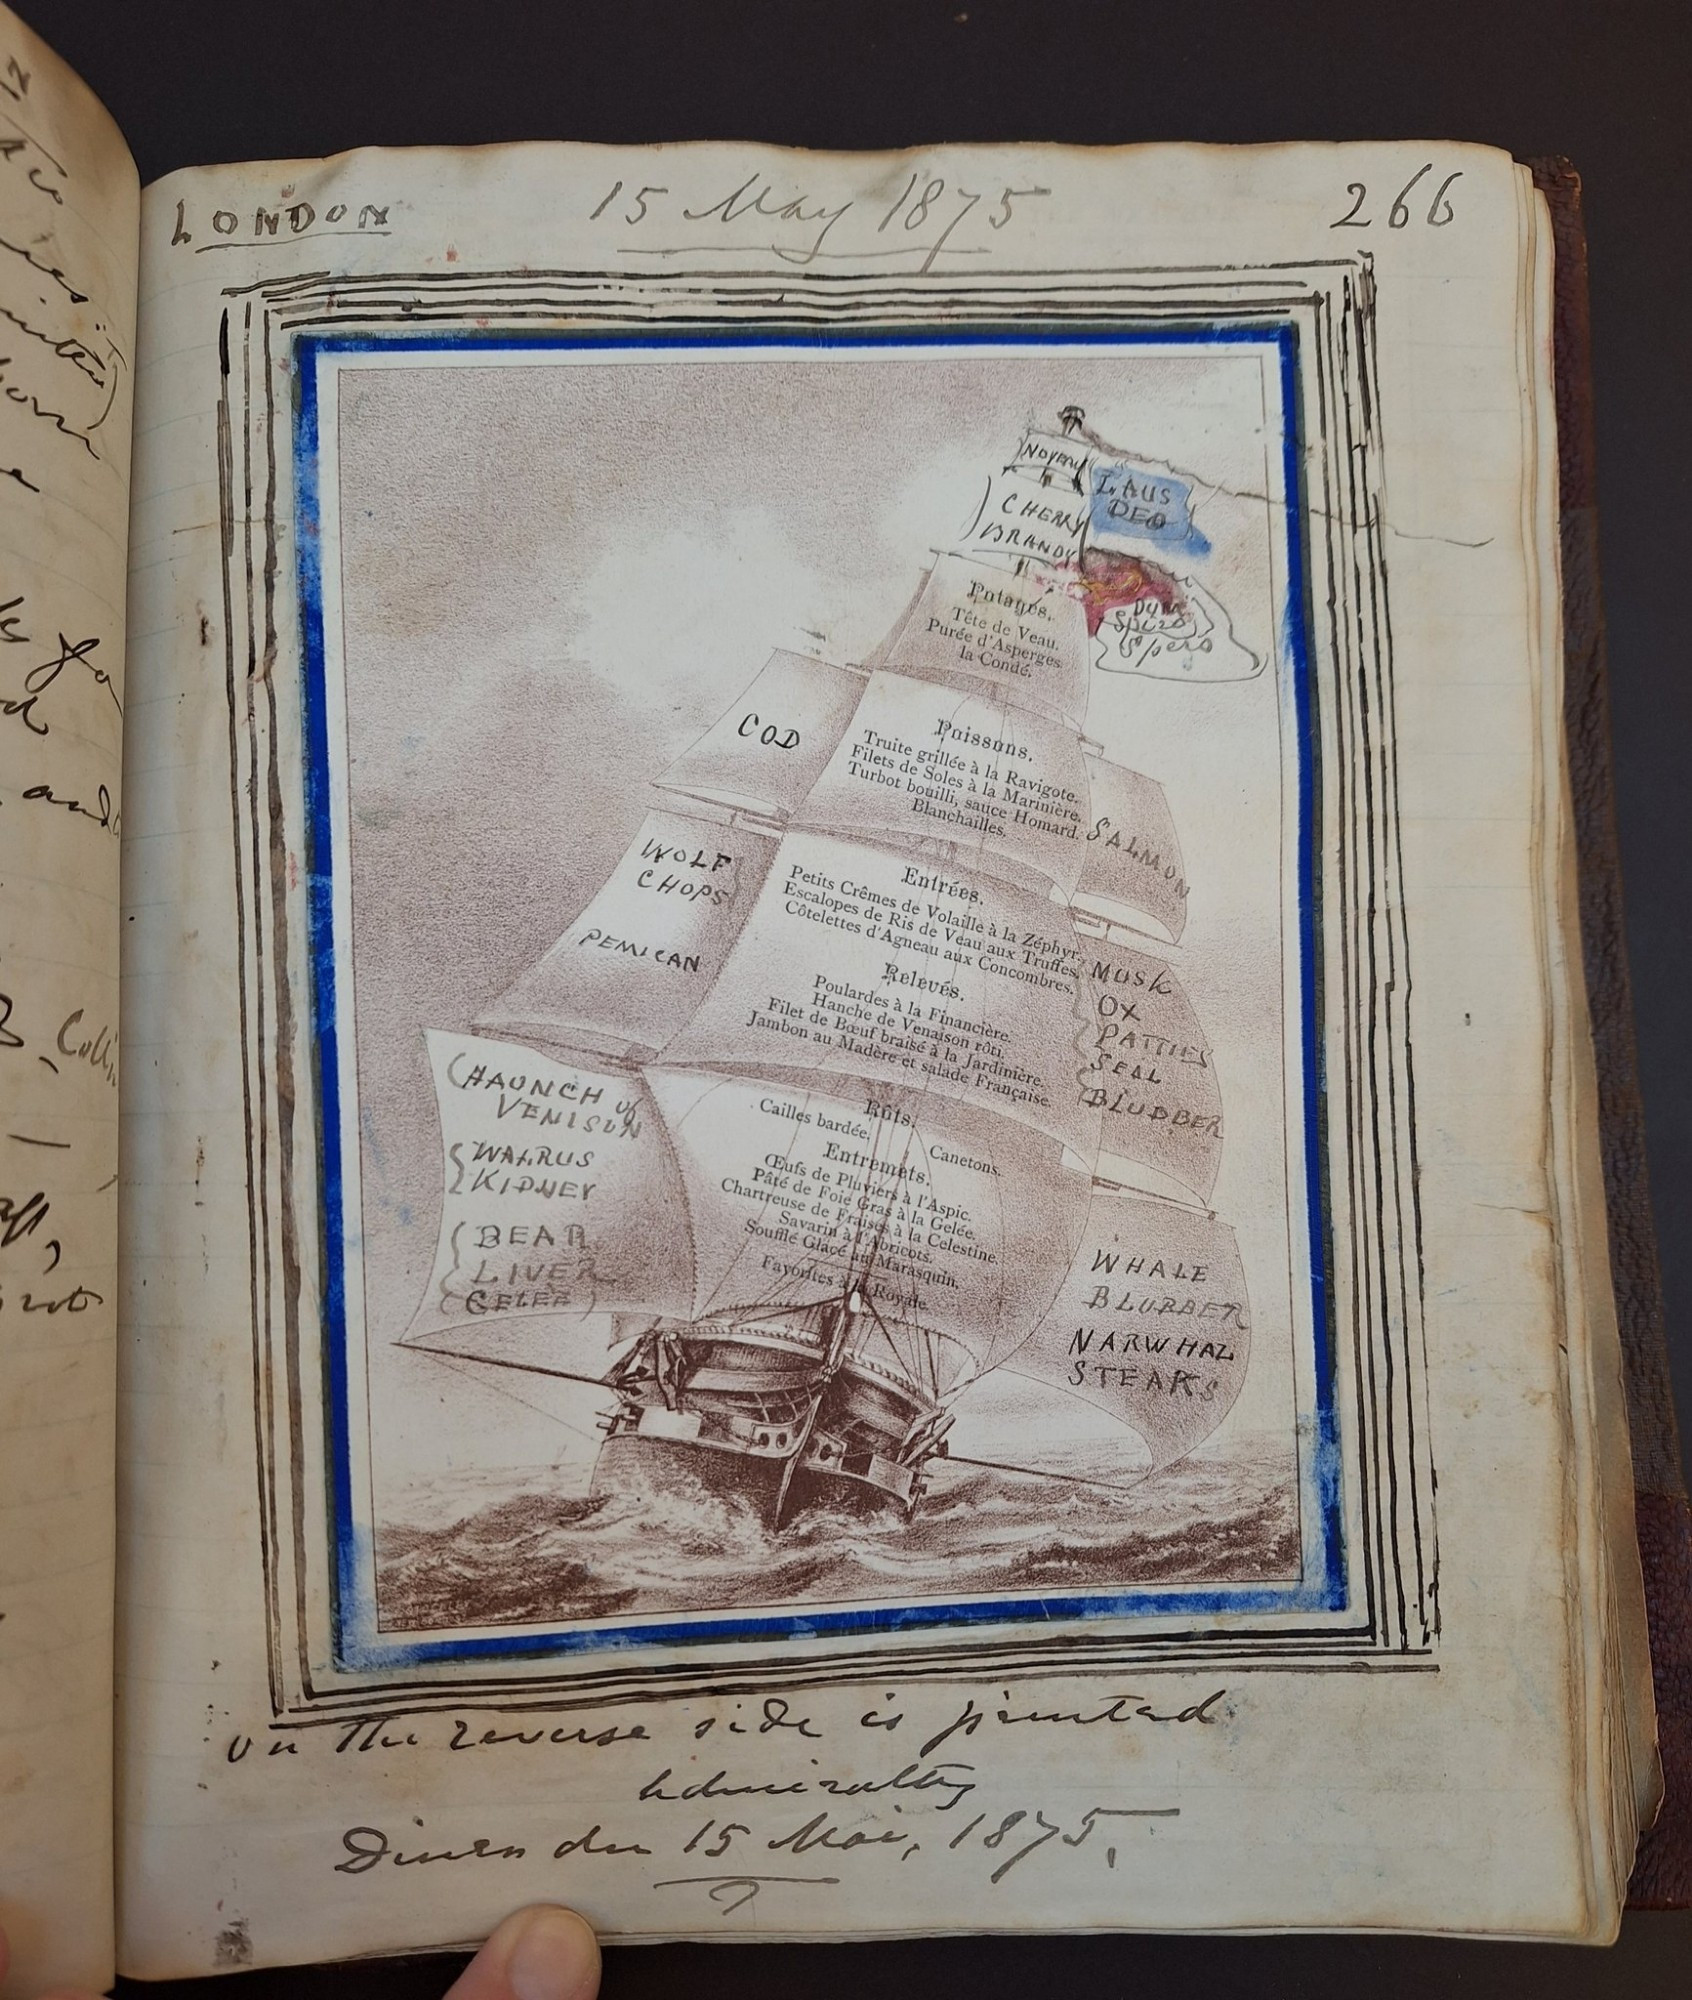 LONDON
15 May 1875
266
NOYEAU
CHERRY
BRANDY
LAUS
DEO
Dum
Spiro
Spero
Potages.
Tête de Veau.
Purée d'Asperges
la Condé.
COD
Poissons.
Truite grillée à la Ravigote.
Filets de Soles à la Marinière.
Turbot bouilli, sauce Homard.
Blanchailles.
SALMON
WOLF
CHOPS
PEMICAN
Entrées.
Petits Crêmes de Volaille à la Zéphyr.
Escalopes de Ris de Veau aux Truffes.
Côtelettes d'Agneau aux Concombres.
Relevés.
Poulardes à la Financière.
Hanche de Venaison rôti.
Filet de Bœuf braisé à la Jardinière.
Jambon au Madère et salade Française.
MUSK
OX
PATTIES
SEAL
BLUBBER
HAUNCH of
VENISON
WALRUS
KIDNEY
BEAR
LIVER
(GELÉE)
Rôts.
Cailles bardée. Canetons.
Entremets.
Œufs de Pluviers à l'Aspic.
Pâté de Foie Gras à la Gelée.
Chartreuse de Fraises à la Celestine
Savarin à l'Abricots.
Soufflé Glacé au Marasquin.
Favorites à la Royale.
WHALE
BLUBBER
NARWHAL
STEAKS
on the reverse side is printed
Admiralty
Diner du 15 Mai, 1875.
and